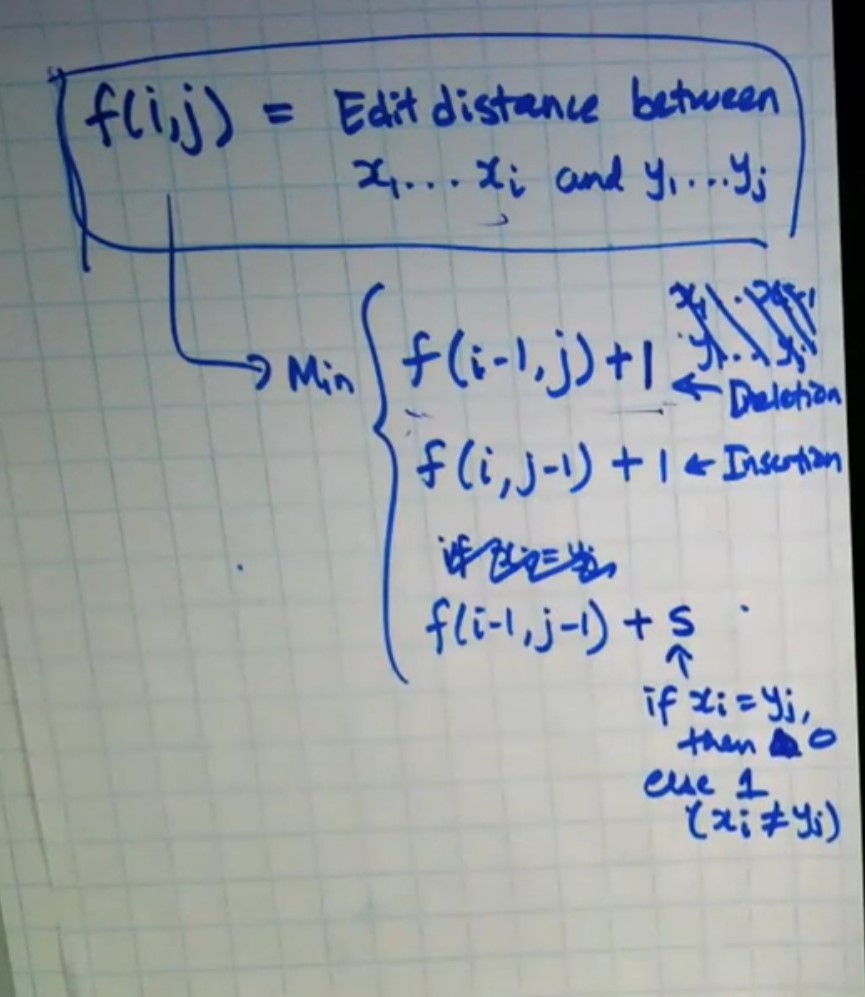 f(i,j) = Edit distance between
x₁...xᵢ and y₁...yⱼ
Min { f(i-1,j)+1 ← Deletion
f(i,j-1) + 1 ← Insertion
f(i-1,j-1) + S
↑
if xᵢ = yⱼ,
then 0
else 1
(xᵢ ≠ yⱼ)